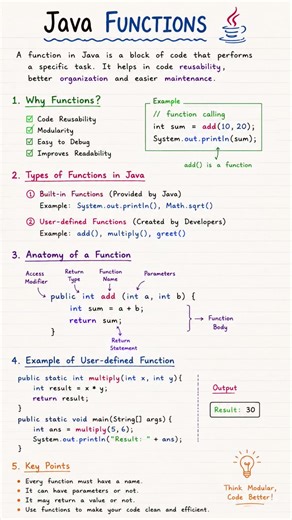 Java Functions
A function in Java is a block of code that performs
a specific task. It helps in code reusability,
better organization and easier maintenance.
1. Why Functions?
Code Reusability
Modularity
Easy to Debug
Improves Readability
Example
// function calling
int sum = add(10, 20);
System.out.println(sum);
add() is a function
2. Types of Functions in Java
1 Built-in Functions (Provided by Java)
Example: System.out.println(), Math.sqrt()
2 User-defined Functions (Created by Developers)
Example: add(), multiply(), greet()
3. Anatomy of a Function
Access Modifier
Return Type
Function Name
Parameters
public int add (int a, int b) {
int sum = a + b;
return sum;
}
Function Body
Return Statement
4. Example of User-defined Function
public static int multiply(int x, int y){
int result = x * y;
return result;
}
public static void main(String[] args) {
int ans = multiply(5, 6);
System.out.println("Result: " + ans);
}
Output
Result: 30
5. Key Points
• Every function must have a name.
• It can have parameters or not.
• It may return a value or not.
• Use functions to make your code clean and efficient.
Think Modular,
Code Better!